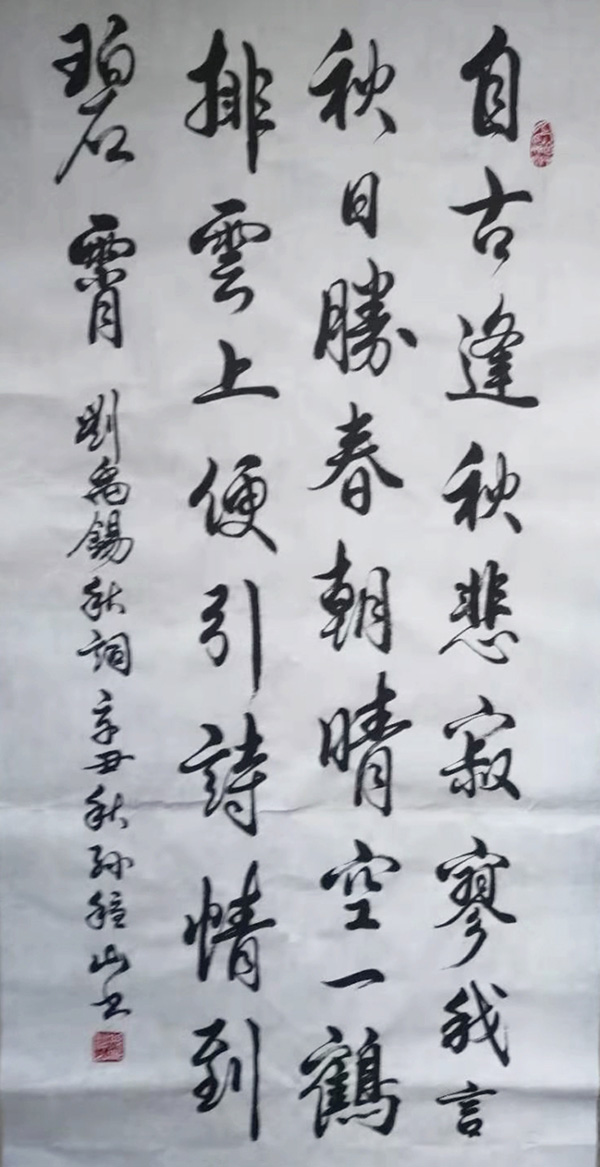 自古逢秋悲寂寥我言
秋日勝春朝晴空一鶴
排雲上便引詩情到
碧霄 劉禹錫秋詞辛丑秋孫穜山書